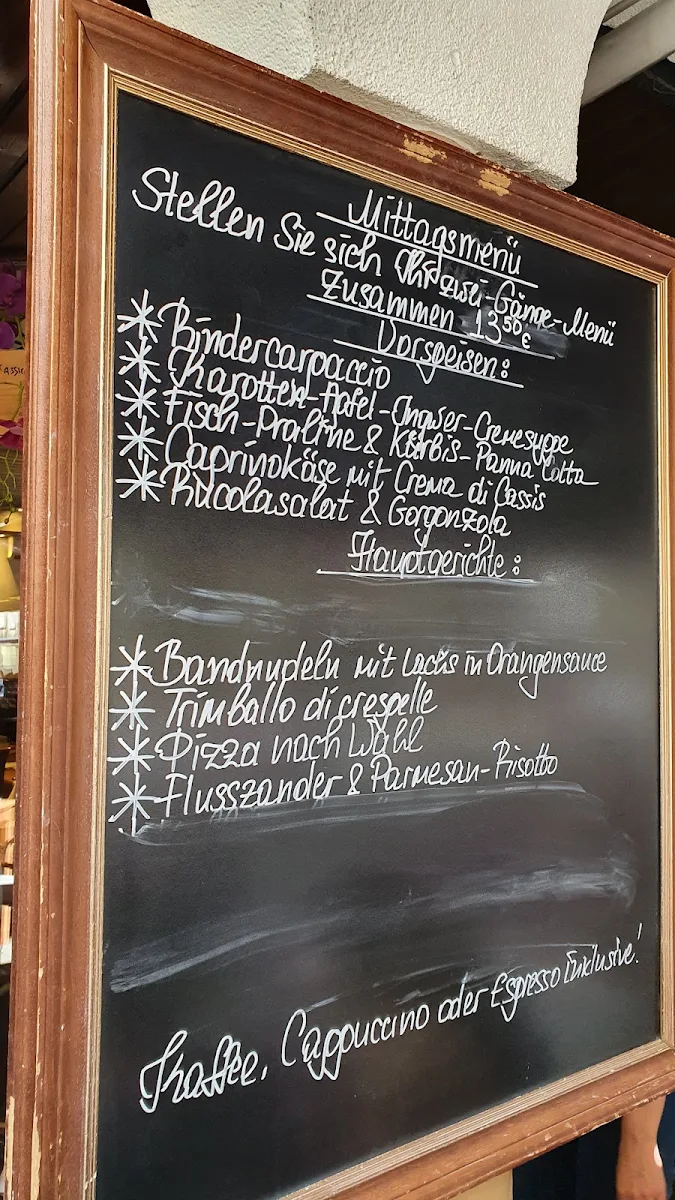 Mittagsmenü
Stellen Sie sich Ihr zwei-Gänge-Menü
Zusammen 13⁵⁰€
Vorspeisen:
* Rindercarpaccio
* Karotten-Apfel-Ingwer-Cremesuppe
* Fisch-Praline & Kürbis-Panna Cotta
* Caprinokäse mit Crema di Cassis
* Rucolasalat & Gorgonzola
Hauptgerichte:
* Bandnudeln mit Lachs in Orangensauce
* Trimballo di crespelle
* Pizza nach Wahl
* Flusszander & Parmesan-Risotto
Kaffee, Cappuccino oder Espresso Inklusive!